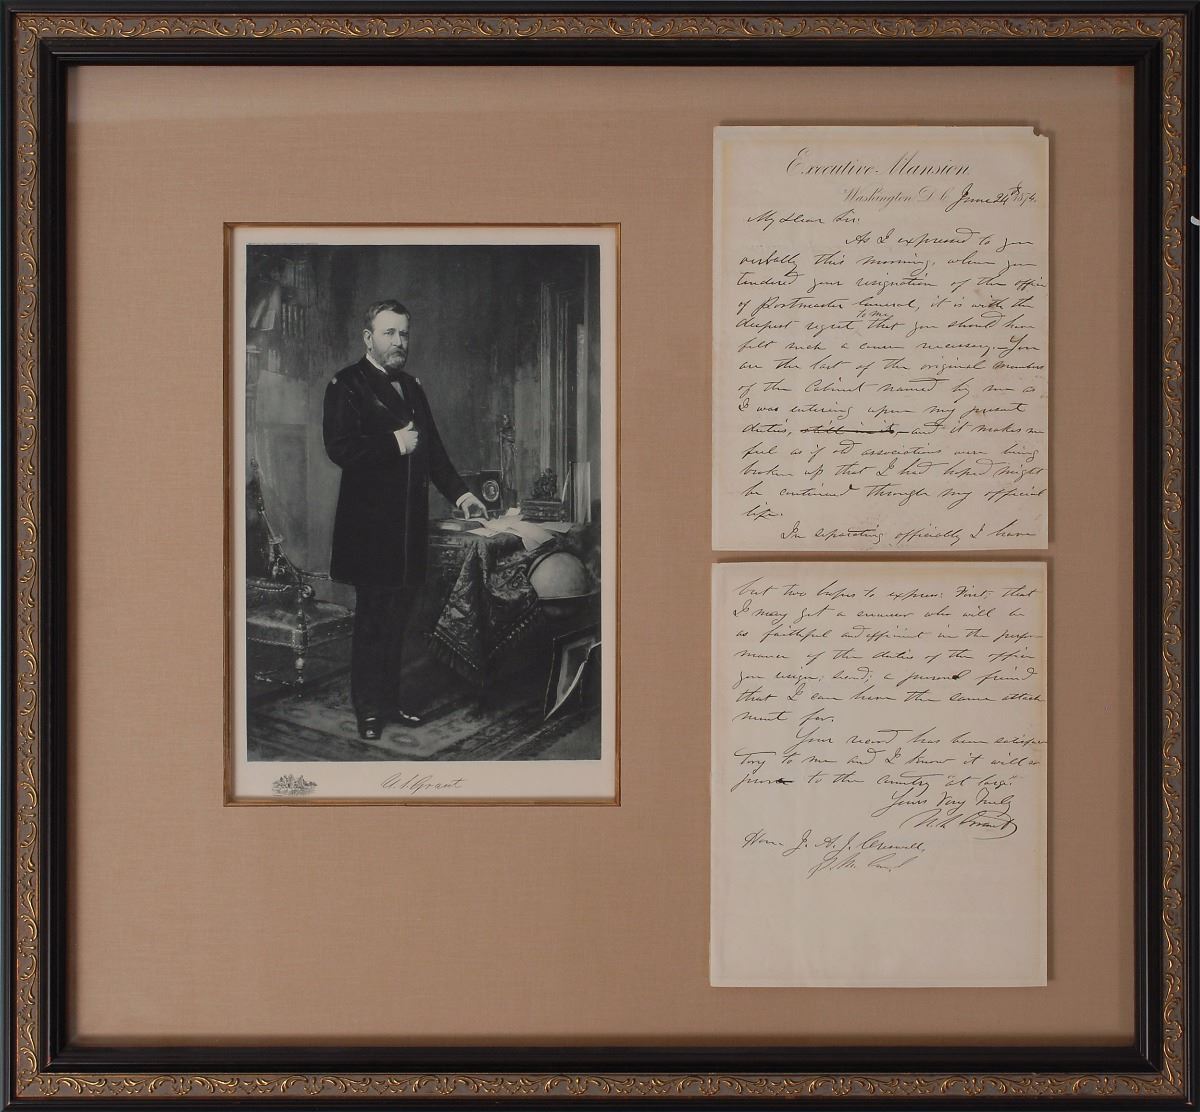 U. S. Grant
Executive Mansion,
Washington, D.C. June 24th 1874.
My Dear Sir:
As I expressed to you
verbally this morning, when you
tendered your resignation of the office
of Postmaster General, it is with the
to me
deepest regret that you should have
felt such a course necessary.—You
are the last of the original members
of the Cabinet named by me as
I was entering upon my present
duties, and it makes me
feel as if old associations were being
broken up that I had hoped might
be continued through my official
life.
In separating officially I have
but two hopes to express: First, that
I may get a successor who will be
as faithful and efficient in the perfor-
mance of the duties of the office
you resign; Second; a personal friend
that I can have the same attach
ment for.
Your record has been satisfac
tory to me and I know it will so
prove to the country "at large."
Yours Very Truly
U. S. Grant
Hon. J. A. J. Creswell,
P. M. Genl